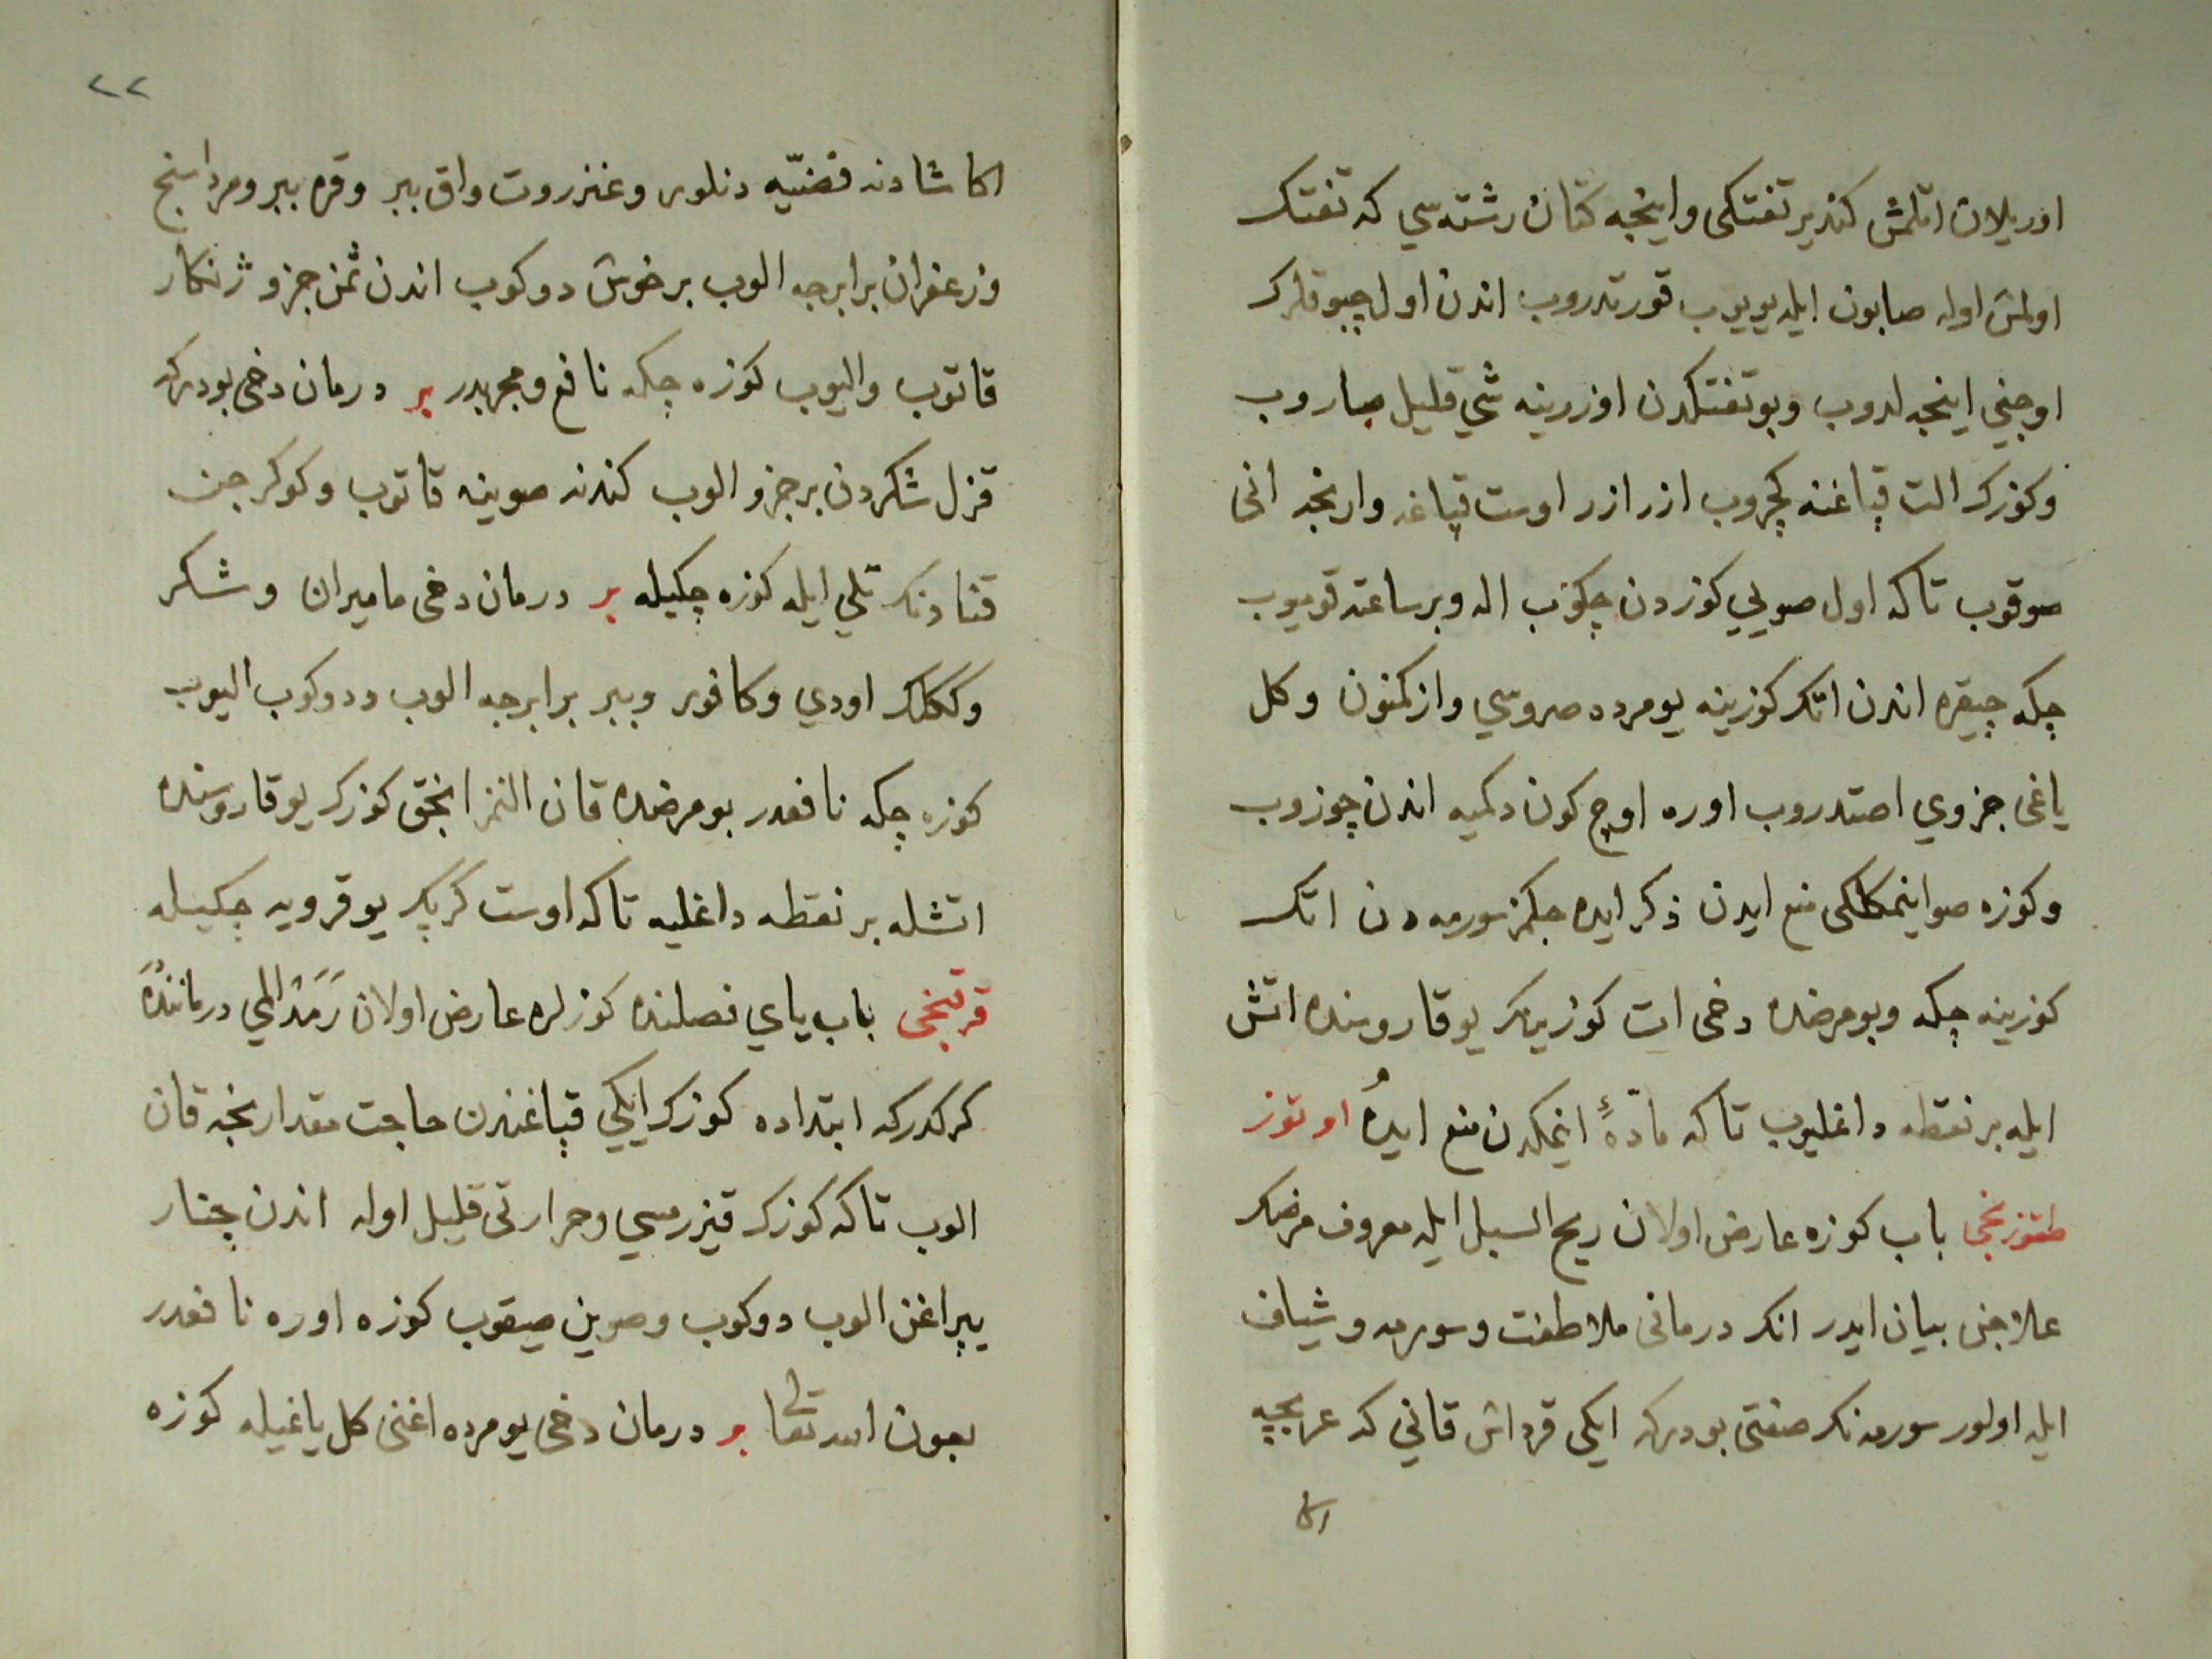 اوريلان اتلمش كندير تفتكى واينجه كتان رشته سي كه تفتك
اولمش اوله صابون ايله يويوب قورتدروب اندن اول چبوقلرك
اوجني اينجه لدوب وبوتفتكدن اوزرينه شي قليل صاروب
وكوزك الت قپاغنه كچروب ازر ازر اوست قپاغه وارنجه انى
صوقوب تاكه اول صويي كوزدن چكوب اله وبرساعتد قويوب
چكه چيقره اندن اتك كوزينه يومرده صروسي وازكمنون وكل
ياغى جزوي اصتدروب اوره اوچ كون دكميه اندن چوزوب
وكوزه صو اينمكلكى منع ايدن ذكر ايده جكمز سورمه دن اتك
كوزينه چكه وبو مرضده دخى ات كوزينك يوقاروسنده اتش
ايله بر نقطه داغليوب تاكه مادّهٔ اينمكدن منع ايدهُ اوتوز
طقوزنجى باب كوزه عارض اولان ريح السبل ايله معروف مرضك
علاجن بيان ايدر انك درمانى ملاطفت وسورمه وشياف
ايله اولور سورمه نك صفتى بودركه ايكى قرداش قاني كه عربجه
اكا
٢٢
اكا شادنه فضيّه دنلور وعنزروت واق ببر وقره ببر ومرداسنج
وزعفران برابرجه الوب برخوش دوكوب اندن ثمن جزو ژنكار
قاتوب واليوب كوزه چكه نافع ومجربدر بر درمان دخى بودركه
قزل شكردن برجزو الوب كندنه صوينه قاتوب وكوكرجن
قنادنك تلي ايله كوزه چكيله بر درمان دخى ماميران وشكر
وككلك اودي وكافور وببر برابرجه الوب ودوكوب اليوب
كوزه چكه نافعدر بومرضده قان النمز انجق كوزك يوقاروسنده
اتشله بر نقطه داغليه تاكه اوست كرپك يوقرويه چكيله
قرقنجى باب ياي فصلنده كوزلره عارض اولان رَمَد المي درماننده
كركدركه ابتداده كوزك ايكي قپاغندن حاجت مقدارنجه قان
الوب تاكه كوزك قيزرمسي وحرارتى قليل اوله اندن چنار
يپراغن الوب دوكوب وصوين صيقوب كوزه اوره نافعدر
بعون الله تعالى بر درمان دخى يومرده اغنى كل ياغيله كوزه